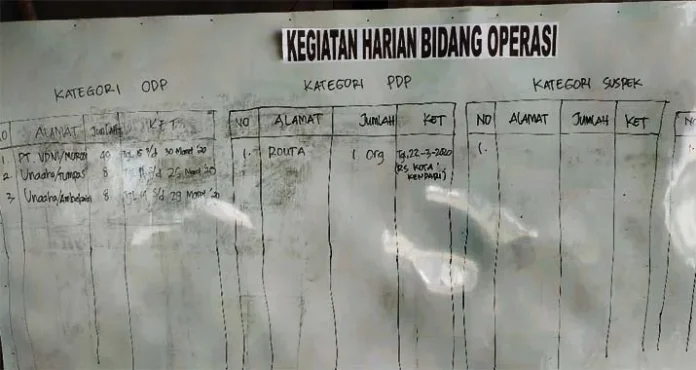 KEGIATAN HARIAN BIDANG OPERASI
KATEGORI ODP
NO ALAMAT JUMLAH KET
1. PT. VDNI/MOROSI 40 Tgl 15 S/d 30 Maret '20
2. Unaaha/Tumpas 8 S/d 29 Maret '20
3. Unaaha/Ambekairi 8 S/d 29 Maret '20
KATEGORI PDP
NO ALAMAT JUMLAH KET
1. ROUTA 1 Org Tg. 22-3-2020
(RS. KOTA
KENDARI)
KATEGORI SUSPEK
NO ALAMAT JUMLAH KET
1.